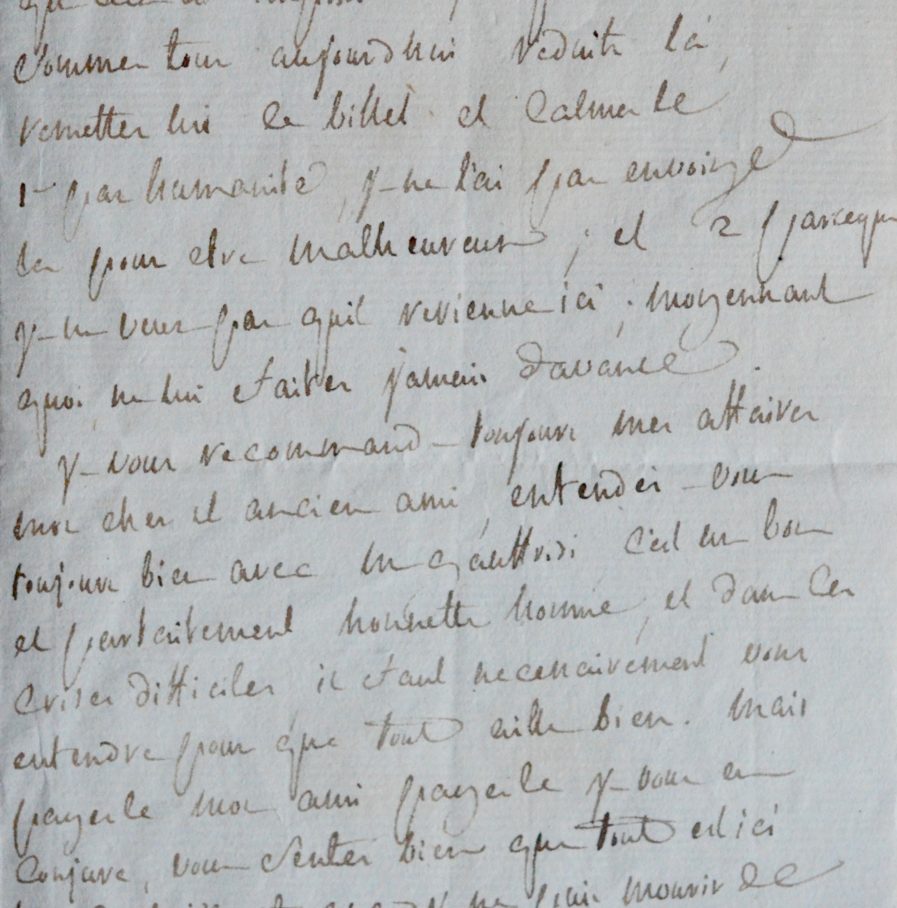 sommes tous aujourdhui reduits là,
remettes lui ce billet et calmes le
1° par humanité, je ne l'ai pas envoiyé
la pour etre malheureux ; et 2 parceque
je ne veux pas quil revienne ici ; moyennant
quoi, ne lui faites jamais davance .
je vous recommande toujours mes affaires
mon cher et ancien ami, entendes-vous
toujours bien avec m gaufridi c'est un bon
et parfaitement honnette homme, et dans ces
crises difficiles, il faut necessairement vous
entendre pour que tout aille bien. Mais
payes le mon ami payes le je vous en
conjure, vous sentes bien que tout est ici
mourir de